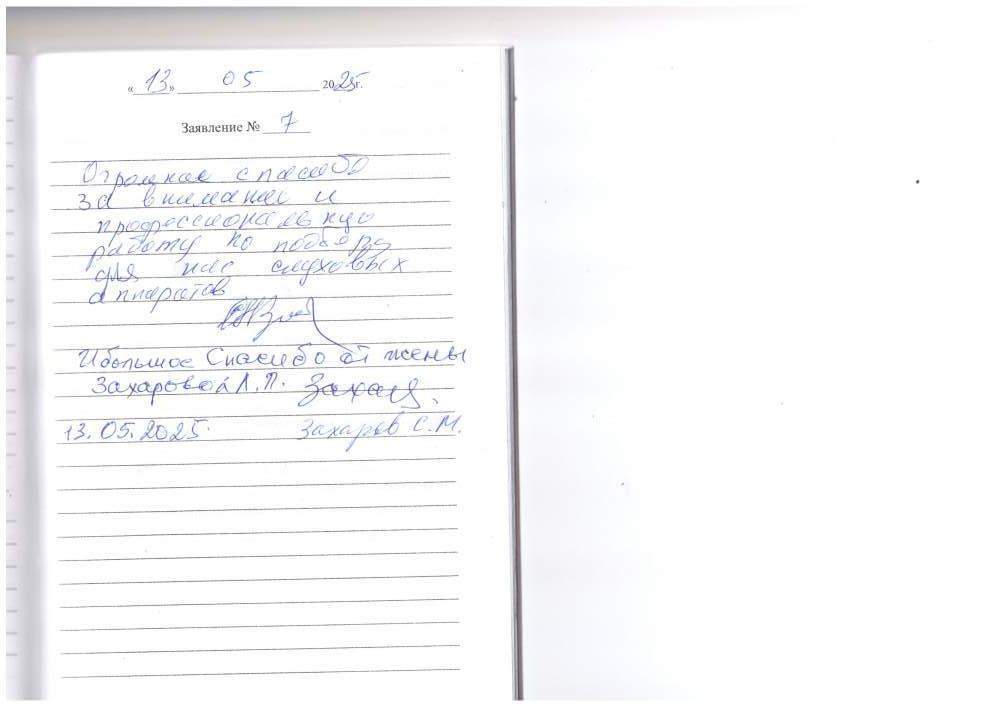 « 13 » 05 2025г.
Заявление № 7
Огромное спасибо
за внимание и
профессиональную
работу по подбору
для нас слуховых
аппаратов
И большое Спасибо от жены
Захаровой Л.П.
13.05.2025. Захаров С.М.